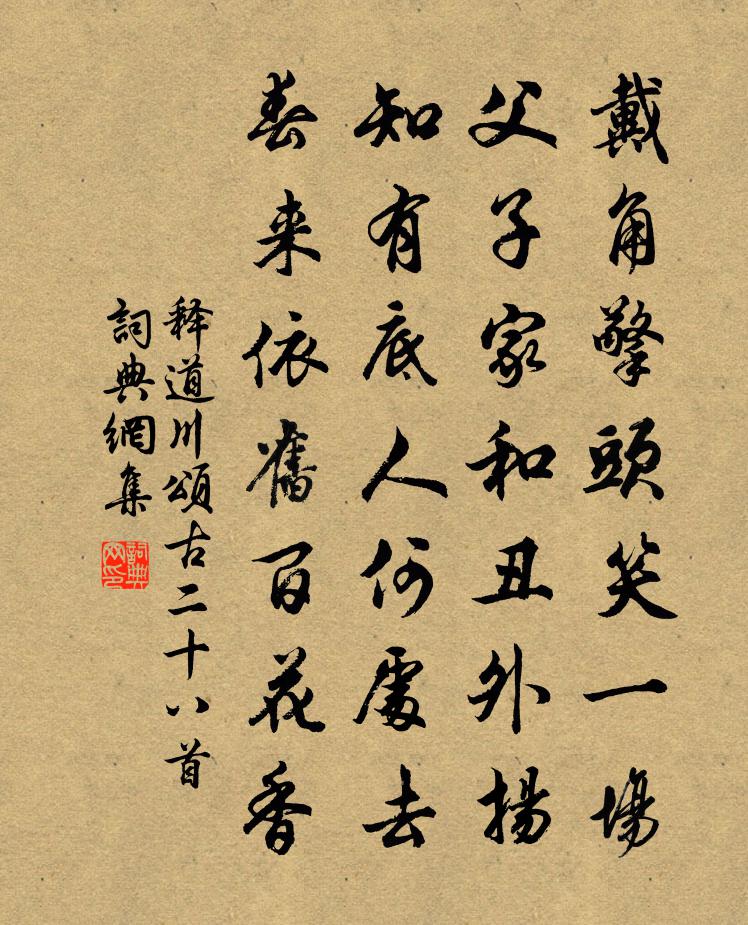 戴角擎頭笑一場
父子家和丑外揚
知有底人何處去
春来依舊百花香
释道川頌古二十八首
詞典網集
詞典网印